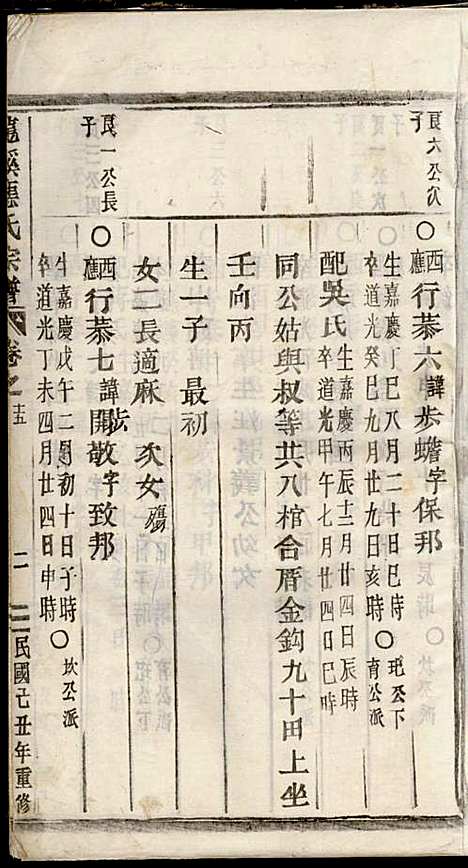 良六公次子
〇西應行恭六諱步蟾字保邦
生嘉慶丁巳八月二十日巳時 玘公下
卒道光癸巳九月廿九日亥時〇育公派
配吳氏生嘉慶丙辰十二月廿四日辰時
卒道光甲午七月廿四日巳時
同公姑與叔等共八棺合厝金鈎九十田上坐
壬向丙
生一子 最初
女二長適麻步 次女殤
良一公長子
〇西應行恭七諱開敬字致邦
生嘉慶戊午二月初十日子時
卒道光丁未四月廿四日申時〇坎公派
應氏宗譜 卷之十五 二 民國己丑年重修